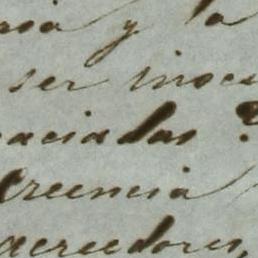 y la
ser inoce
aciadas
creencia
acreedores,